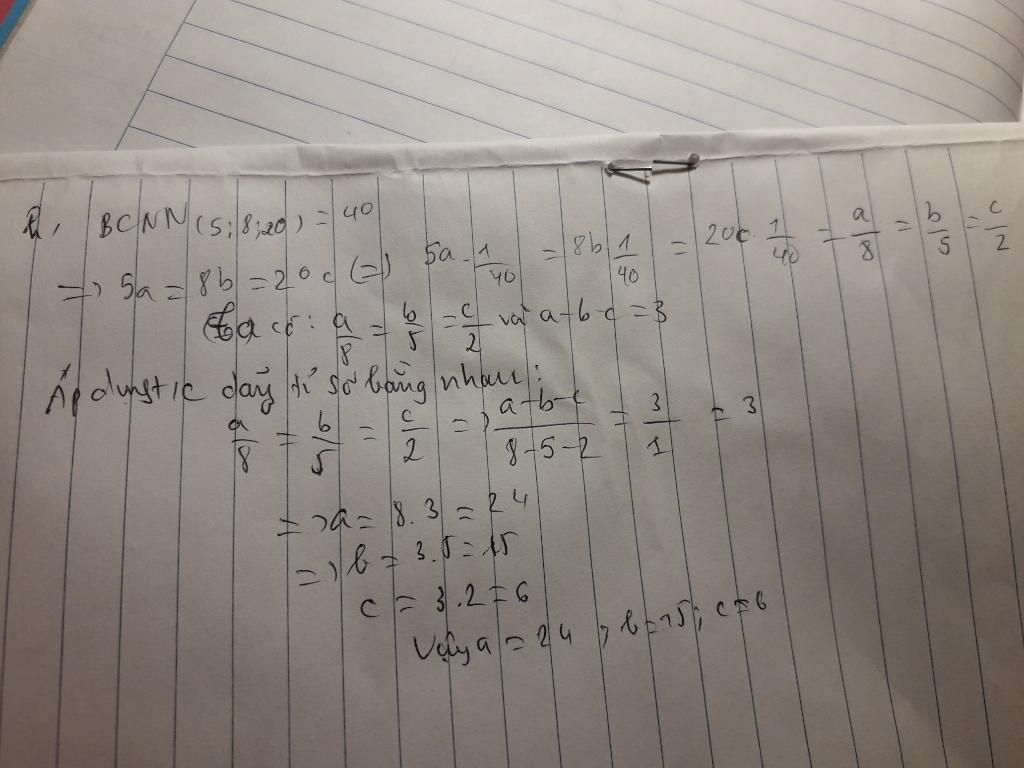 BCNN (5; 8; 20) = 40
=> 5a = 8b = 20c (=) 5a . 1/40 = 8b 1/40 = 20c . 1/40 = a/8 = b/5 = c/2
Ta có: a/8 = b/5 = c/2 và a-b-c = 3
Áp dụng t/c dãy tỉ số bằng nhau:
a/8 = b/5 = c/2 => a-b-c/8-5-2 = 3/1 = 3
=> a = 8.3 = 24
=> b = 3.5 = 15
c = 3.2 = 6
Vậy a = 24 ; b = 15 ; c = 6